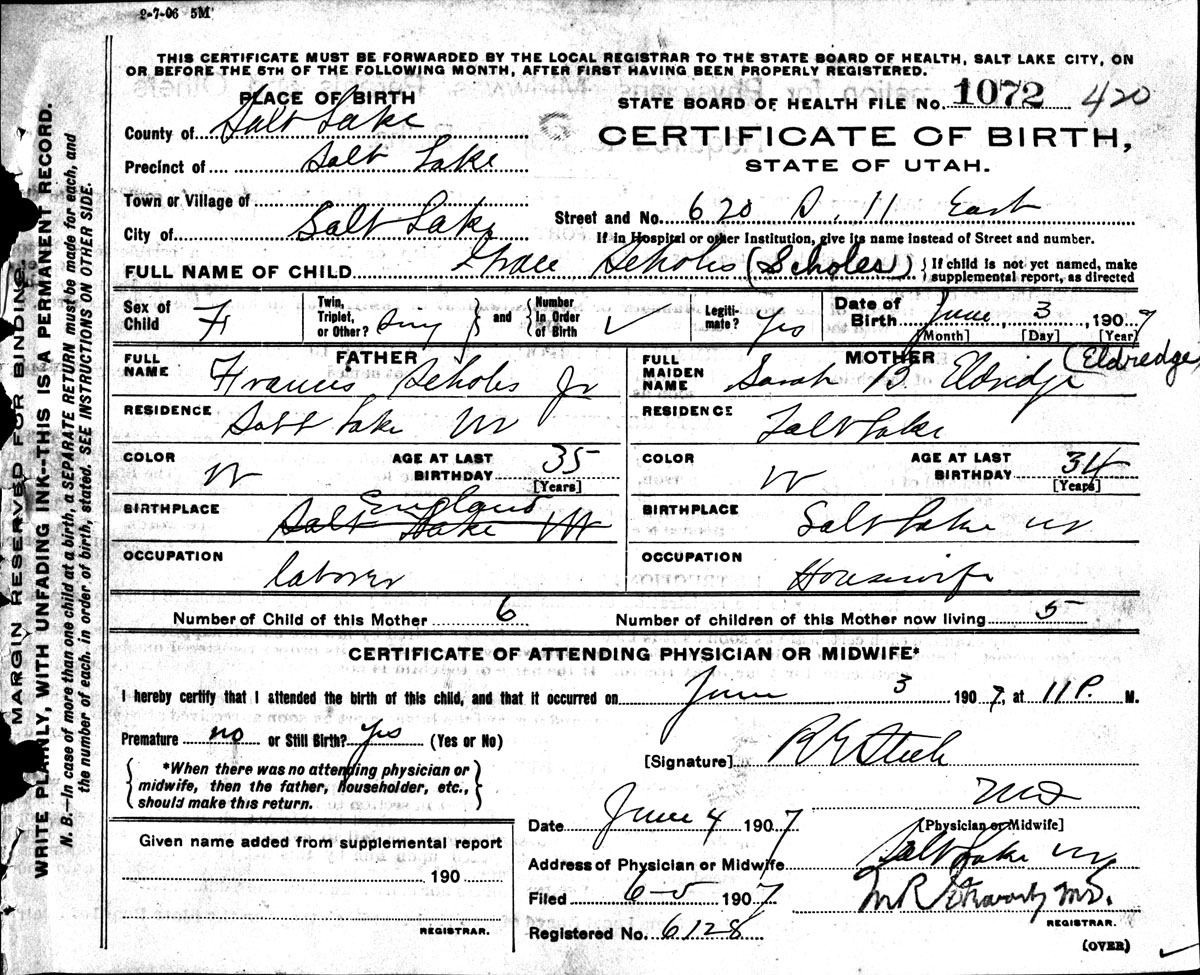 2-7-06 5M
THIS CERTIFICATE MUST BE FORWARDED BY THE LOCAL REGISTRAR TO THE STATE BOARD OF HEALTH, SALT LAKE CITY, ON
OR BEFORE THE 5TH OF THE FOLLOWING MONTH, AFTER FIRST HAVING BEEN PROPERLY REGISTERED.
PLACE OF BIRTH
STATE BOARD OF HEALTH FILE No. 1072 420
County of Salt Lake
CERTIFICATE OF BIRTH,
Precinct of Salt Lake
STATE OF UTAH.
Town or Village of
Street and No. 620 S. 11 East
City of Salt Lake
If in Hospital or other Institution, give its name instead of Street and number.
FULL NAME OF CHILD Grace Scholes (Scholes) { If child is not yet named, make
supplemental report, as directed
Sex of Child F
Twin, Triplet, or Other? Sing } and { Number In Order of Birth ✓
Legiti-mate? Yes
Date of Birth June 3, 1907
[Month] [Day] [Year]
FATHER
FULL NAME Francis Scholes Jr
RESIDENCE Salt Lake Ut
COLOR W
AGE AT LAST BIRTHDAY 35
[Years]
BIRTHPLACE England
Salt Lake Ut
OCCUPATION laborer
MOTHER
FULL MAIDEN NAME Sarah B Eldridge (Eldredge)
RESIDENCE Salt Lake
COLOR W
AGE AT LAST BIRTHDAY 34
[Years]
BIRTHPLACE Salt Lake Ut
OCCUPATION Housewife
Number of Child of this Mother 6
Number of children of this Mother now living 5
CERTIFICATE OF ATTENDING PHYSICIAN OR MIDWIFE*
I hereby certify that I attended the birth of this child, and that it occurred on June 3 1907, at 11 P. M.
Premature no or Still Birth? yes (Yes or No)
[Signature]
{ *When there was no attending physician or
midwife, then the father, householder, etc.,
should make this return. }
MD
[Physician or Midwife]
Date June 4 1907
Address of Physician or Midwife Salt Lake Ut
Given name added from supplemental report
190
REGISTRAR.
Filed 6-5 1907
M.D.
REGISTRAR.
Registered No. 6128
(OVER)
MARGIN RESERVED FOR BINDING.
WRITE PLAINLY, WITH UNFADING INK--THIS IS A PERMANENT RECORD.
N. B.—In case of more than one child at a birth, a SEPARATE RETURN must be made for each, and
the number of each, in order of birth, stated. SEE INSTRUCTIONS ON OTHER SIDE.